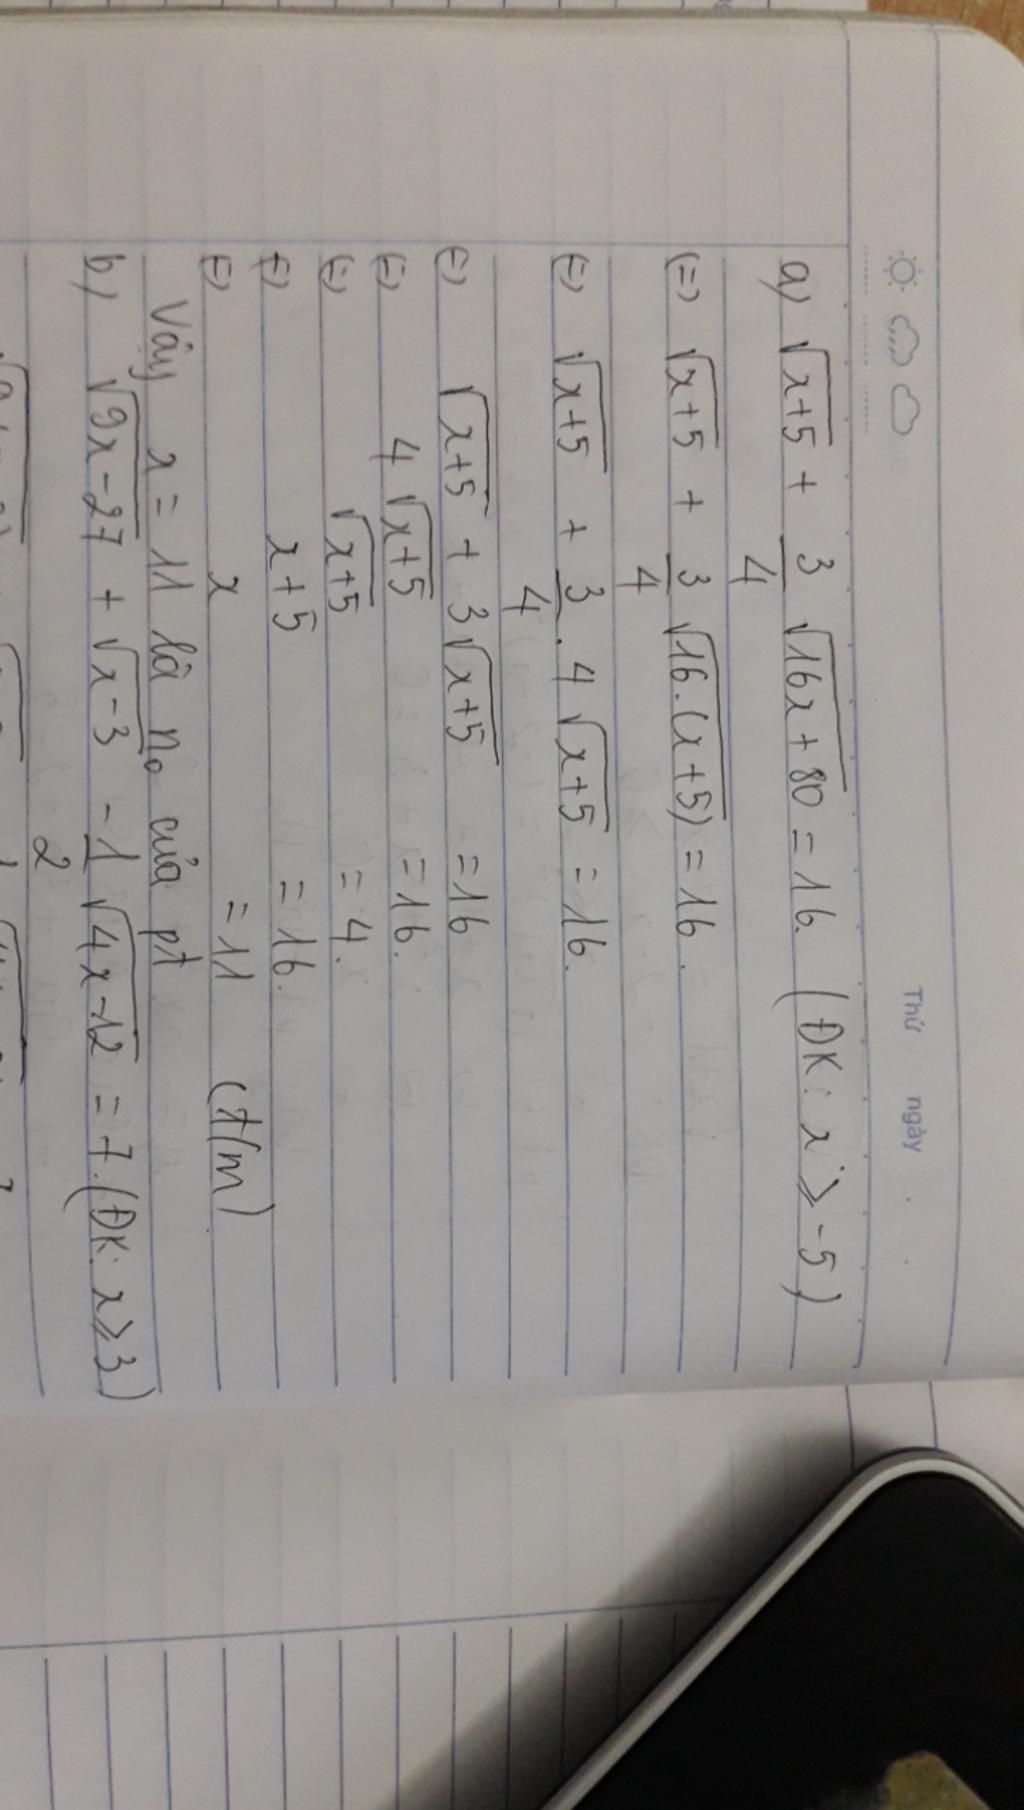 Thứ ngày
a) √(x+5) + 3/4 √(16x+80) = 16. (ĐK: x ⩾ -5)
(=) √(x+5) + 3/4 √(16.(x+5)) = 16.
(=) √(x+5) + 3/4 . 4√(x+5) = 16.
(=) √(x+5) + 3√(x+5) = 16
(=) 4√(x+5) = 16.
(=) √(x+5) = 4.
(=) x+5 = 16.
(=) x = 11 (t/m)
Vậy x = 11 là no của pt
b) √(9x-27) + √(x-3) - 1/2 √(4x-12) = 7. (ĐK: x ⩾ 3)